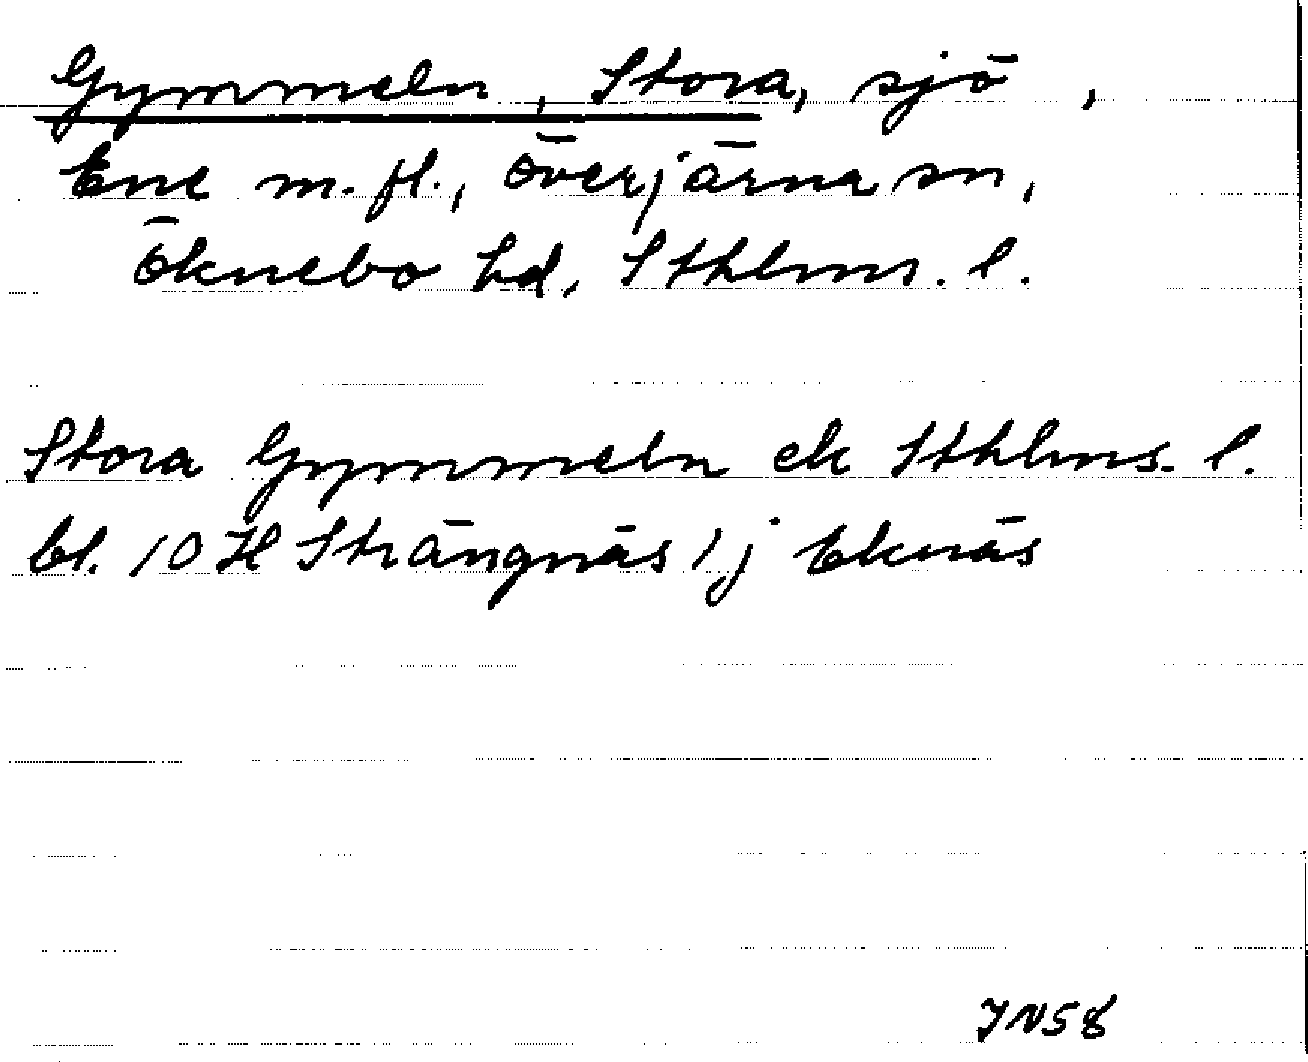 Gymmeln, Stora, sjö,
Ene m. fl., Överjärna sn,
Öknebo hd, Sthlms. l.
Stora Gymmeln ek Sthlms. l.
bl. 10 H Strängnäs 1 j Eknäs
JN58